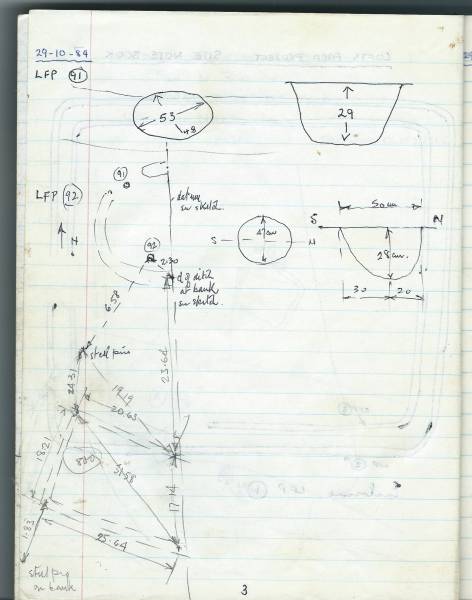 29-10-84
LFP 91
53
48
29
91
LFP 92
datum
on sketch
50cm
S N
N
92
2.30
S N
28cm.
30 20
of ditch
at bank
on sketch
6.58
steel pin
23.64
24.31
19.19
20.63
18.21
31.58
17.14
25.64
1.83
steel peg
on bank
3